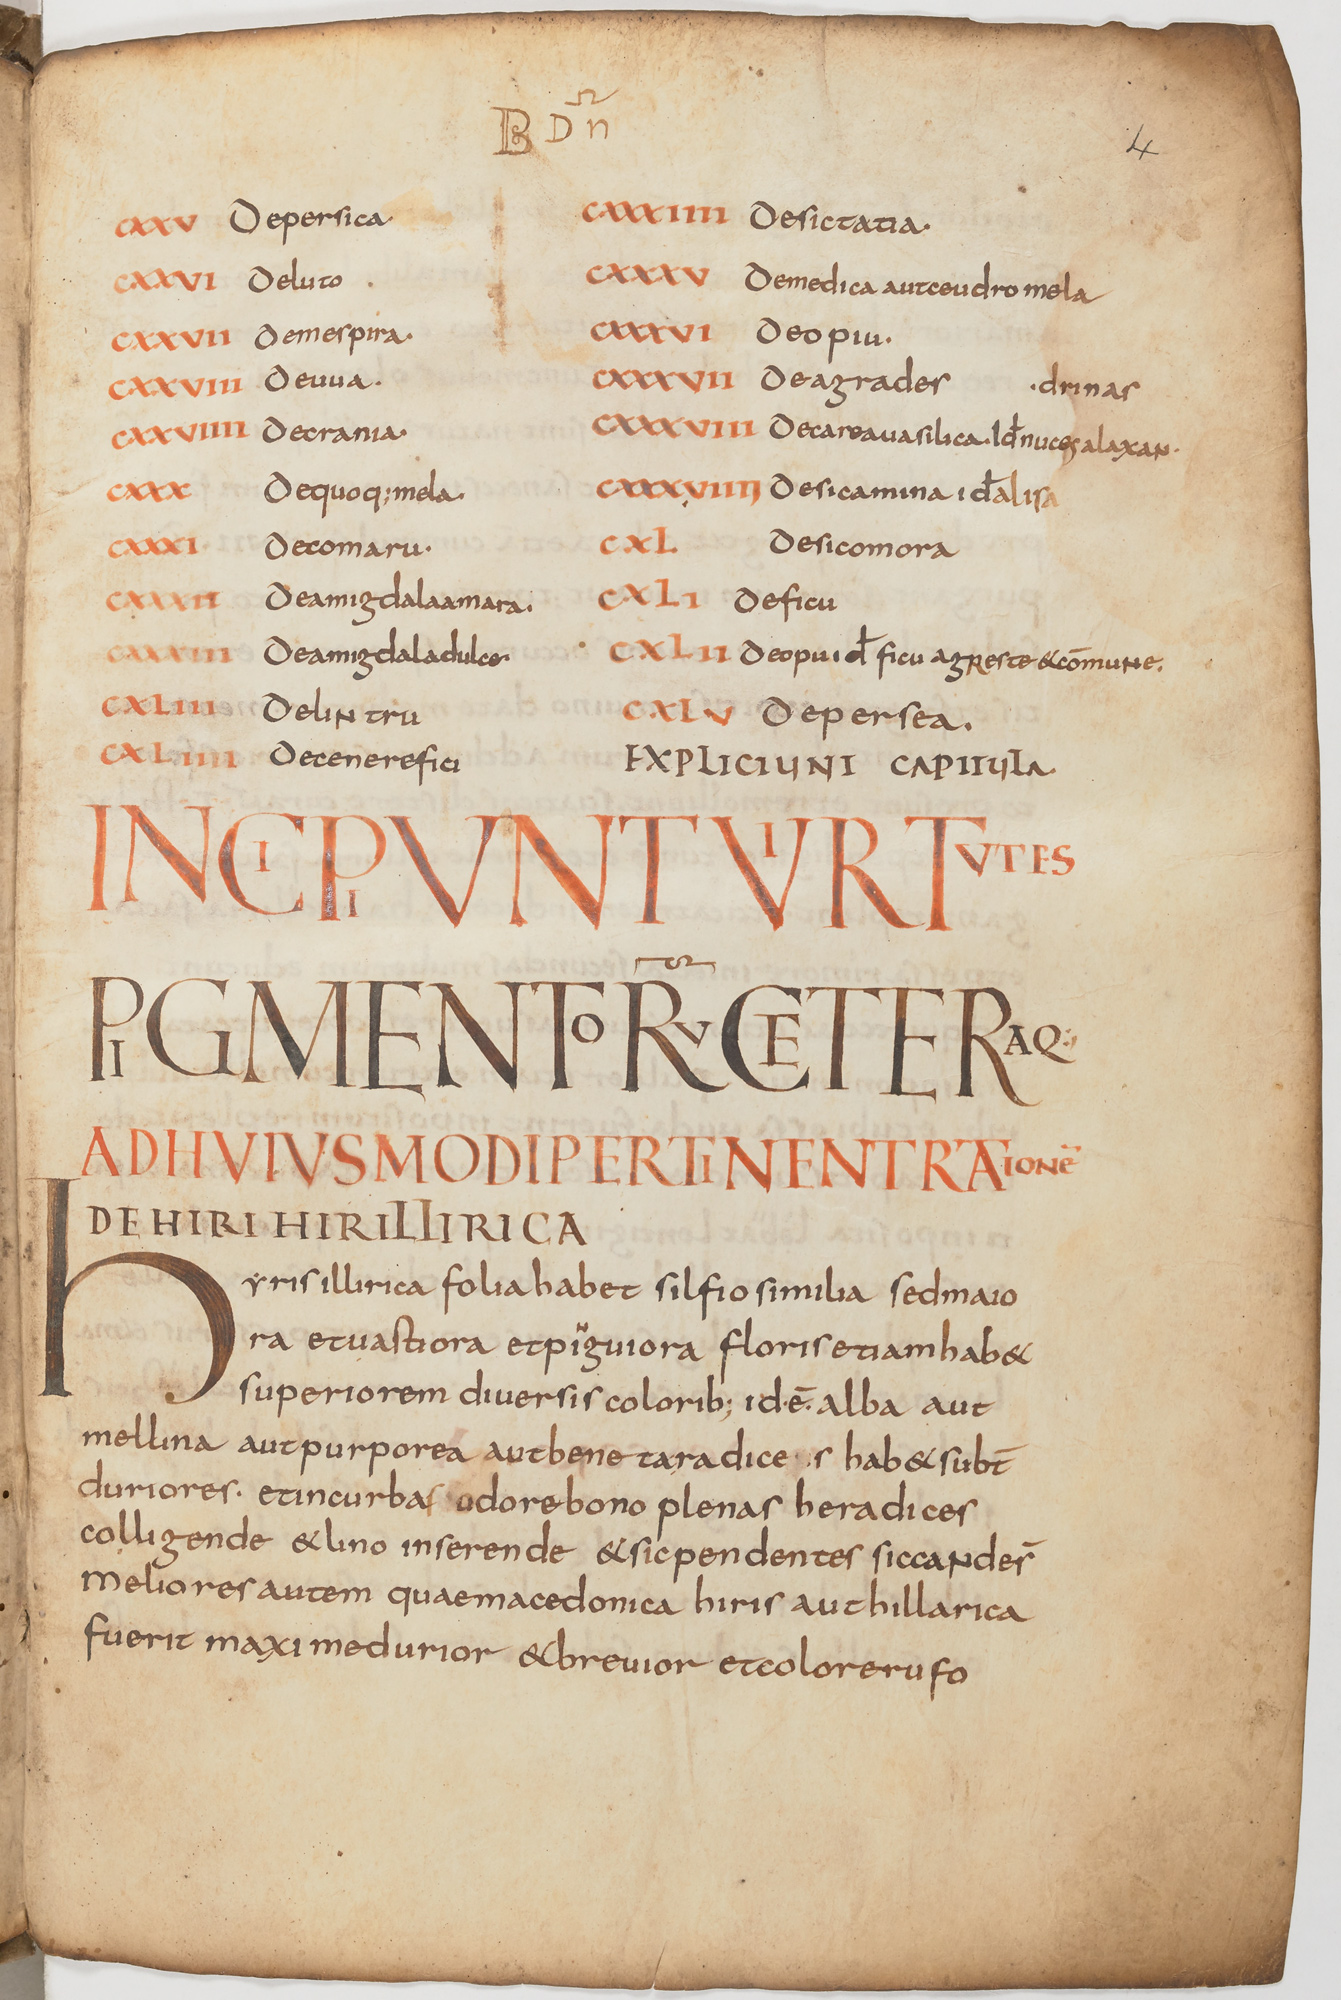 B Dn̄
4
CXXV Depersica·
CXXVI Deluto
CXXVII Demespira·
CXXVIII Deuua·
CXXVIIII Decrania·
CXXX Dequoq;mela·
CXXXI Decomaru·
CXXXII Deamigdalaamara·
CXXXIII Deamigdaladulce·
CXLIII Delintru
CXLIIII Decenerefici
CXXXIIII Desictatia·
CXXXV Demedica autceudromela
CXXXVI Deopiu·
CXXXVII Deagrades ·drinas
CXXXVIII Decareauasilica·Id̄nucesalaxan·
CXXXVIIII Desicamina id̄alisa
CXL Desicomora
CXLI Deficu
CXLII Deopuid̄ ficu agreste&cōmune·
CXLV Depersea·
EXPLICIUNT CAPITULA·
INCIPIUNT VIRTUTES
PIGMENTORV̄ CETERAQ:
ADHVIVSMODIPERTINENTRATIONĒ
DEHIRI HIRILLIRICA
hyris illirica folia habet silfio similia sedmaio
ra etuastiora etpiguiora floris etiam hab&
superiorem diuersis colorib; id·ē· alba aut
mellina autpurporea autbene taradice s hab&subt̄
duriores· etincurbas odorebono plenas heradices
colligende &lino inserende &sicpendentes siccandes̄
meliores autem quaemacedonica hiris authillarica
fuerit maximedurior &breuior etcolorerufo